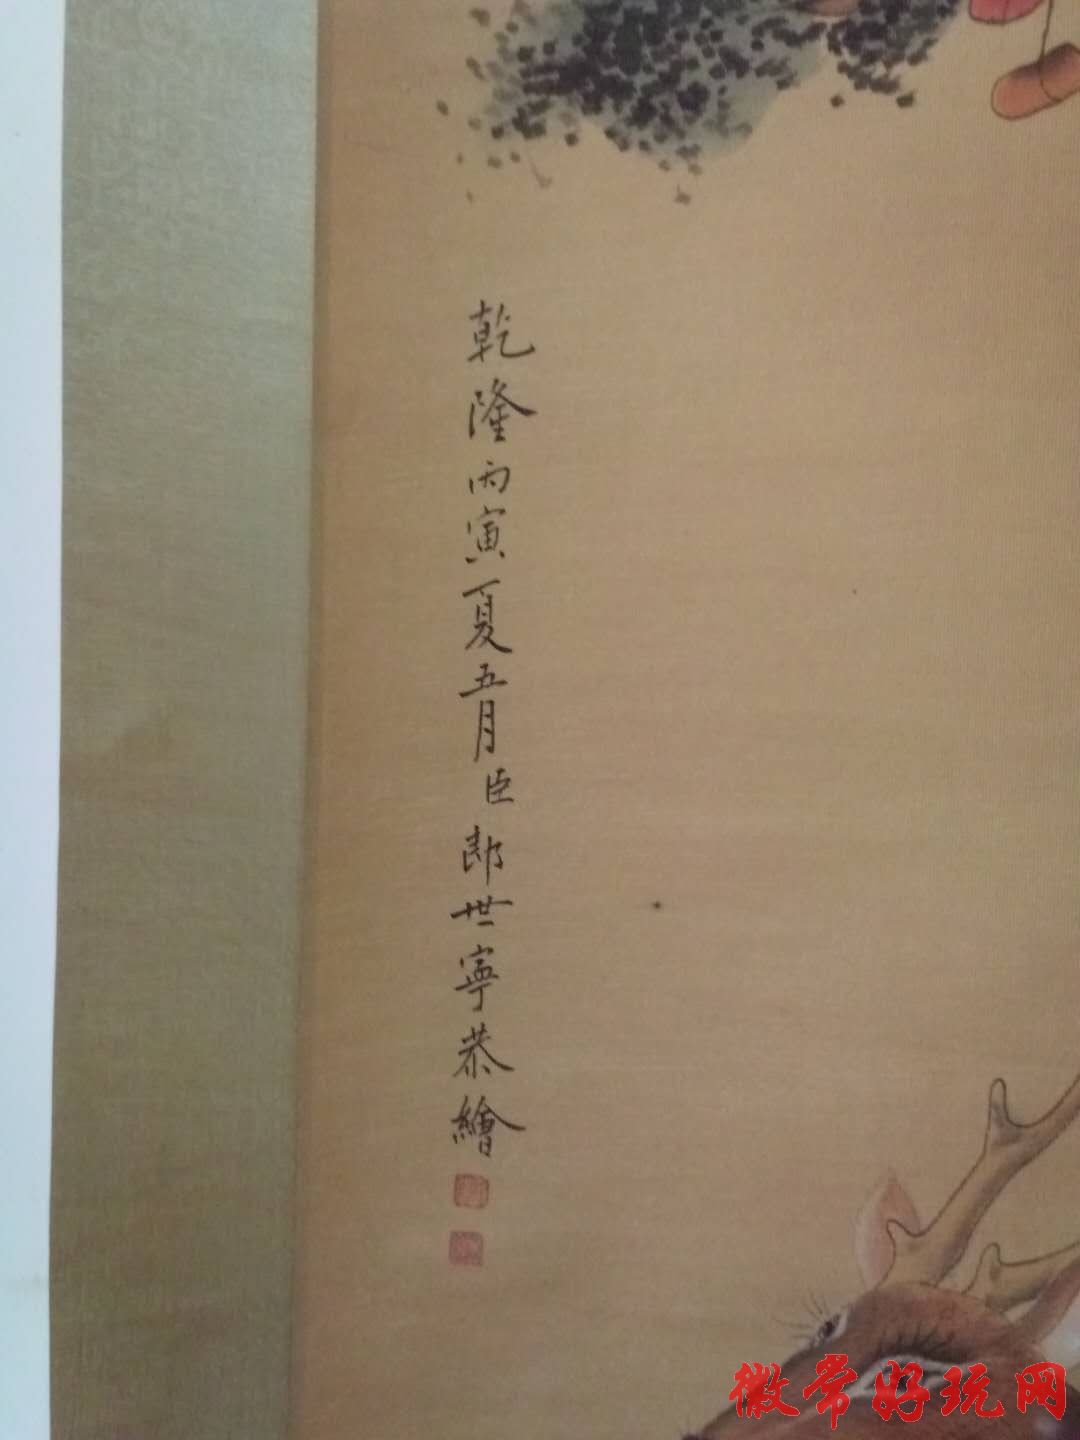 乾隆丙寅夏五月臣郎世寧恭繪
徽常好玩网